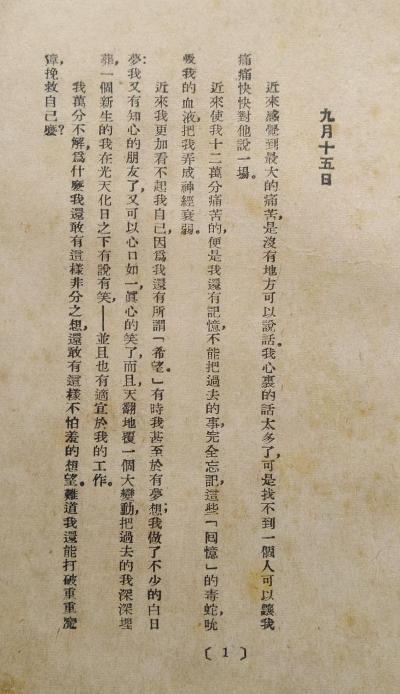 九月十五日
近來感覺到最大的痛苦，是沒有地方可以說話。我心裏的話太多了，可是找不到一個人可以讓我
痛痛快快對他說一場。
近來使我十二萬分痛苦的，便是我還有記憶，不能把過去的事完全忘記，這些「回憶」的毒蛇，吮
吸我的血液，把我弄成神經衰弱。
近來我更加看不起我自己，因爲我還有所謂「希望。」有時我甚至於有夢想；我做了不少的白日
夢：我又有知心的朋友了，又可以心口如一，眞心的笑了，而且天翻地覆一個大變動，把過去的我深深埋
葬，一個新生的我在光天化日之下有說有笑，——並且也有適宜於我的工作。
我萬分不解，爲什麼我還敢有這樣非分之想，還敢有這樣不怕羞的想望。難道我還能打破重重魔
障，挽救自己麼？
〔1〕